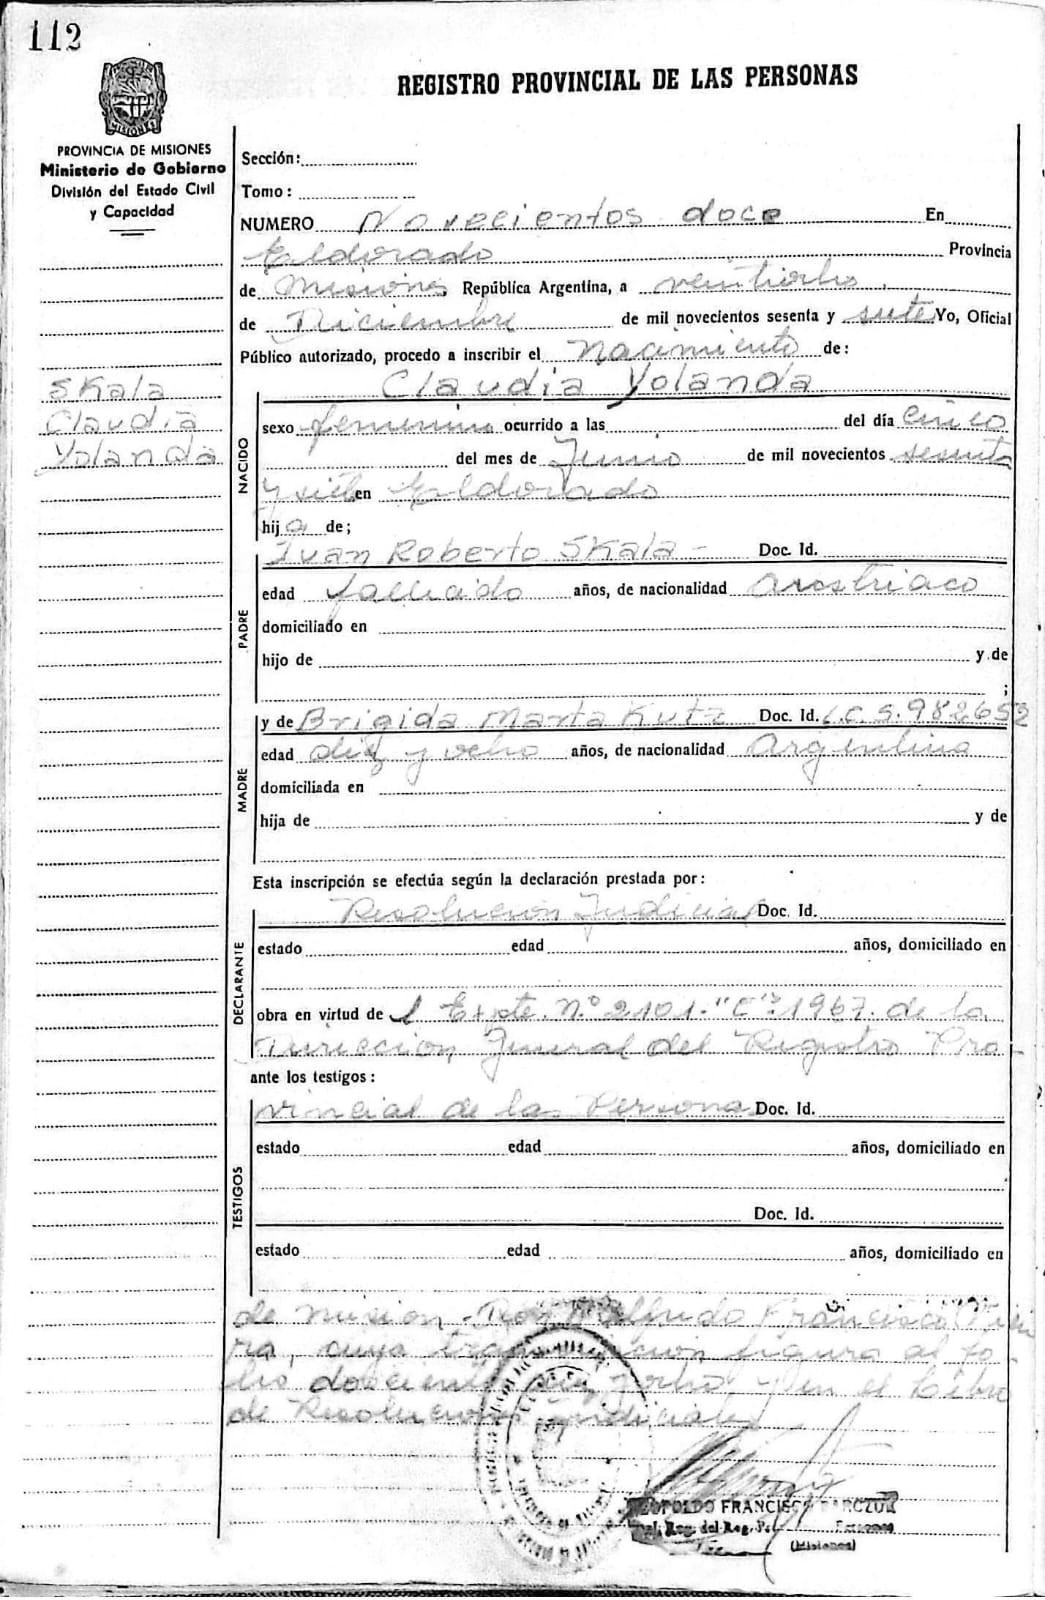 112
REGISTRO PROVINCIAL DE LAS PERSONAS
PROVINCIA DE MISIONES
Ministerio de Gobierno
División del Estado Civil
y Capacidad
MISIONES
Sección:
Tomo:
NUMERO Novecientos doce En
Eldorado Provincia
de Misiones República Argentina, a veintiocho
de Diciembre de mil novecientos sesenta y siete Yo, Oficial
Público autorizado, procedo a inscribir el Nacimiento de:
Skala
Claudia
Yolanda
Claudia Yolanda
NACIDO
sexo femenino ocurrido a las del día cinco
del mes de Junio de mil novecientos sesenta
y siete en Eldorado
hija de;
PADRE
Juan Roberto Skala - Doc. Id.
edad fallecido años, de nacionalidad Austriaco
domiciliado en
hijo de y de
;
MADRE
y de Brigida Marta Kutz Doc. Id. L.C.5.982652
edad diez y ocho años, de nacionalidad Argentina
domiciliada en
hija de y de
Esta inscripción se efectúa según la declaración prestada por:
DECLARANTE
Resolucion Judicial Doc. Id.
estado edad años, domiciliado en
obra en virtud de l Expte. N.º 2101."C".1967. de la
Direccion General del Registro Pro-
ante los testigos:
TESTIGOS
vincial de las Personas Doc. Id.
estado edad años, domiciliado en
Doc. Id.
estado edad años, domiciliado en
de Francisco
cuya figura al fo-
lio y en el Libro
de Resoluciones Judiciales
LEOPOLDO FRANCISCO
del Reg.
(Misiones)